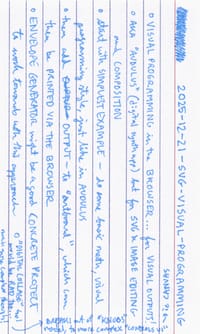 2025-12-21-SVG-VISUAL-PROGRAMMING
SHAWN
o VISUAL PROGRAMMING in the BROWSER... for VISUAL OUTPUT
o AKA "AUDULUS" (digital synth app) but for SVG & IMAGE EDITING
and COMPOSITION
o start with SIMPLEST EXAMPLE - do some basic math, visual
programming style, just like in AUDULUS
o then add OUTPUT - to "artboard", which can
then be PRINTED VIA THE BROWSER
o ENVELOPE GENERATOR might be a good CONCRETE PROJECT
to work towards with this approach
o "DIGITAL COLLAGE" tool
would be RAD too
more complex
out of "KNOBS"
to more complex